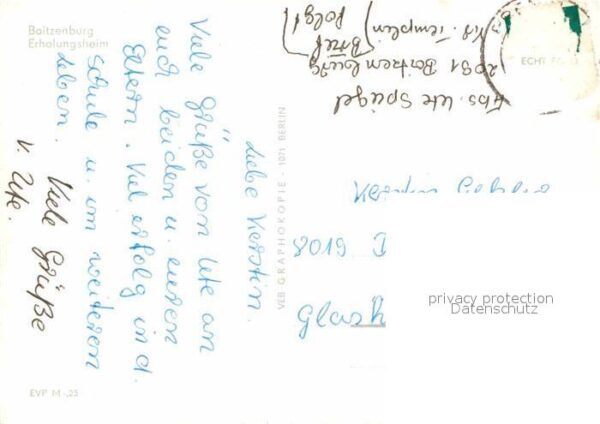 Boitzenburg
Erholungsheim
Liebe Kerstin.
Viele Grüße von Ute an
euch beiden u. euren
Eltern. Viel erfolg in d.
schule u. im weiteren
Leben.
Viele Grüße
v. Ute.
Abs. Ute Spiegel
2091 Boitzenburg
Kr. Templin
Brief
folgt
ECHT FOTO
VEB GRAPHOKOPIE - 1071 BERLIN
Kerstin
8019 D
Glash
privacy protection
Datenschutz
EVP M -,25